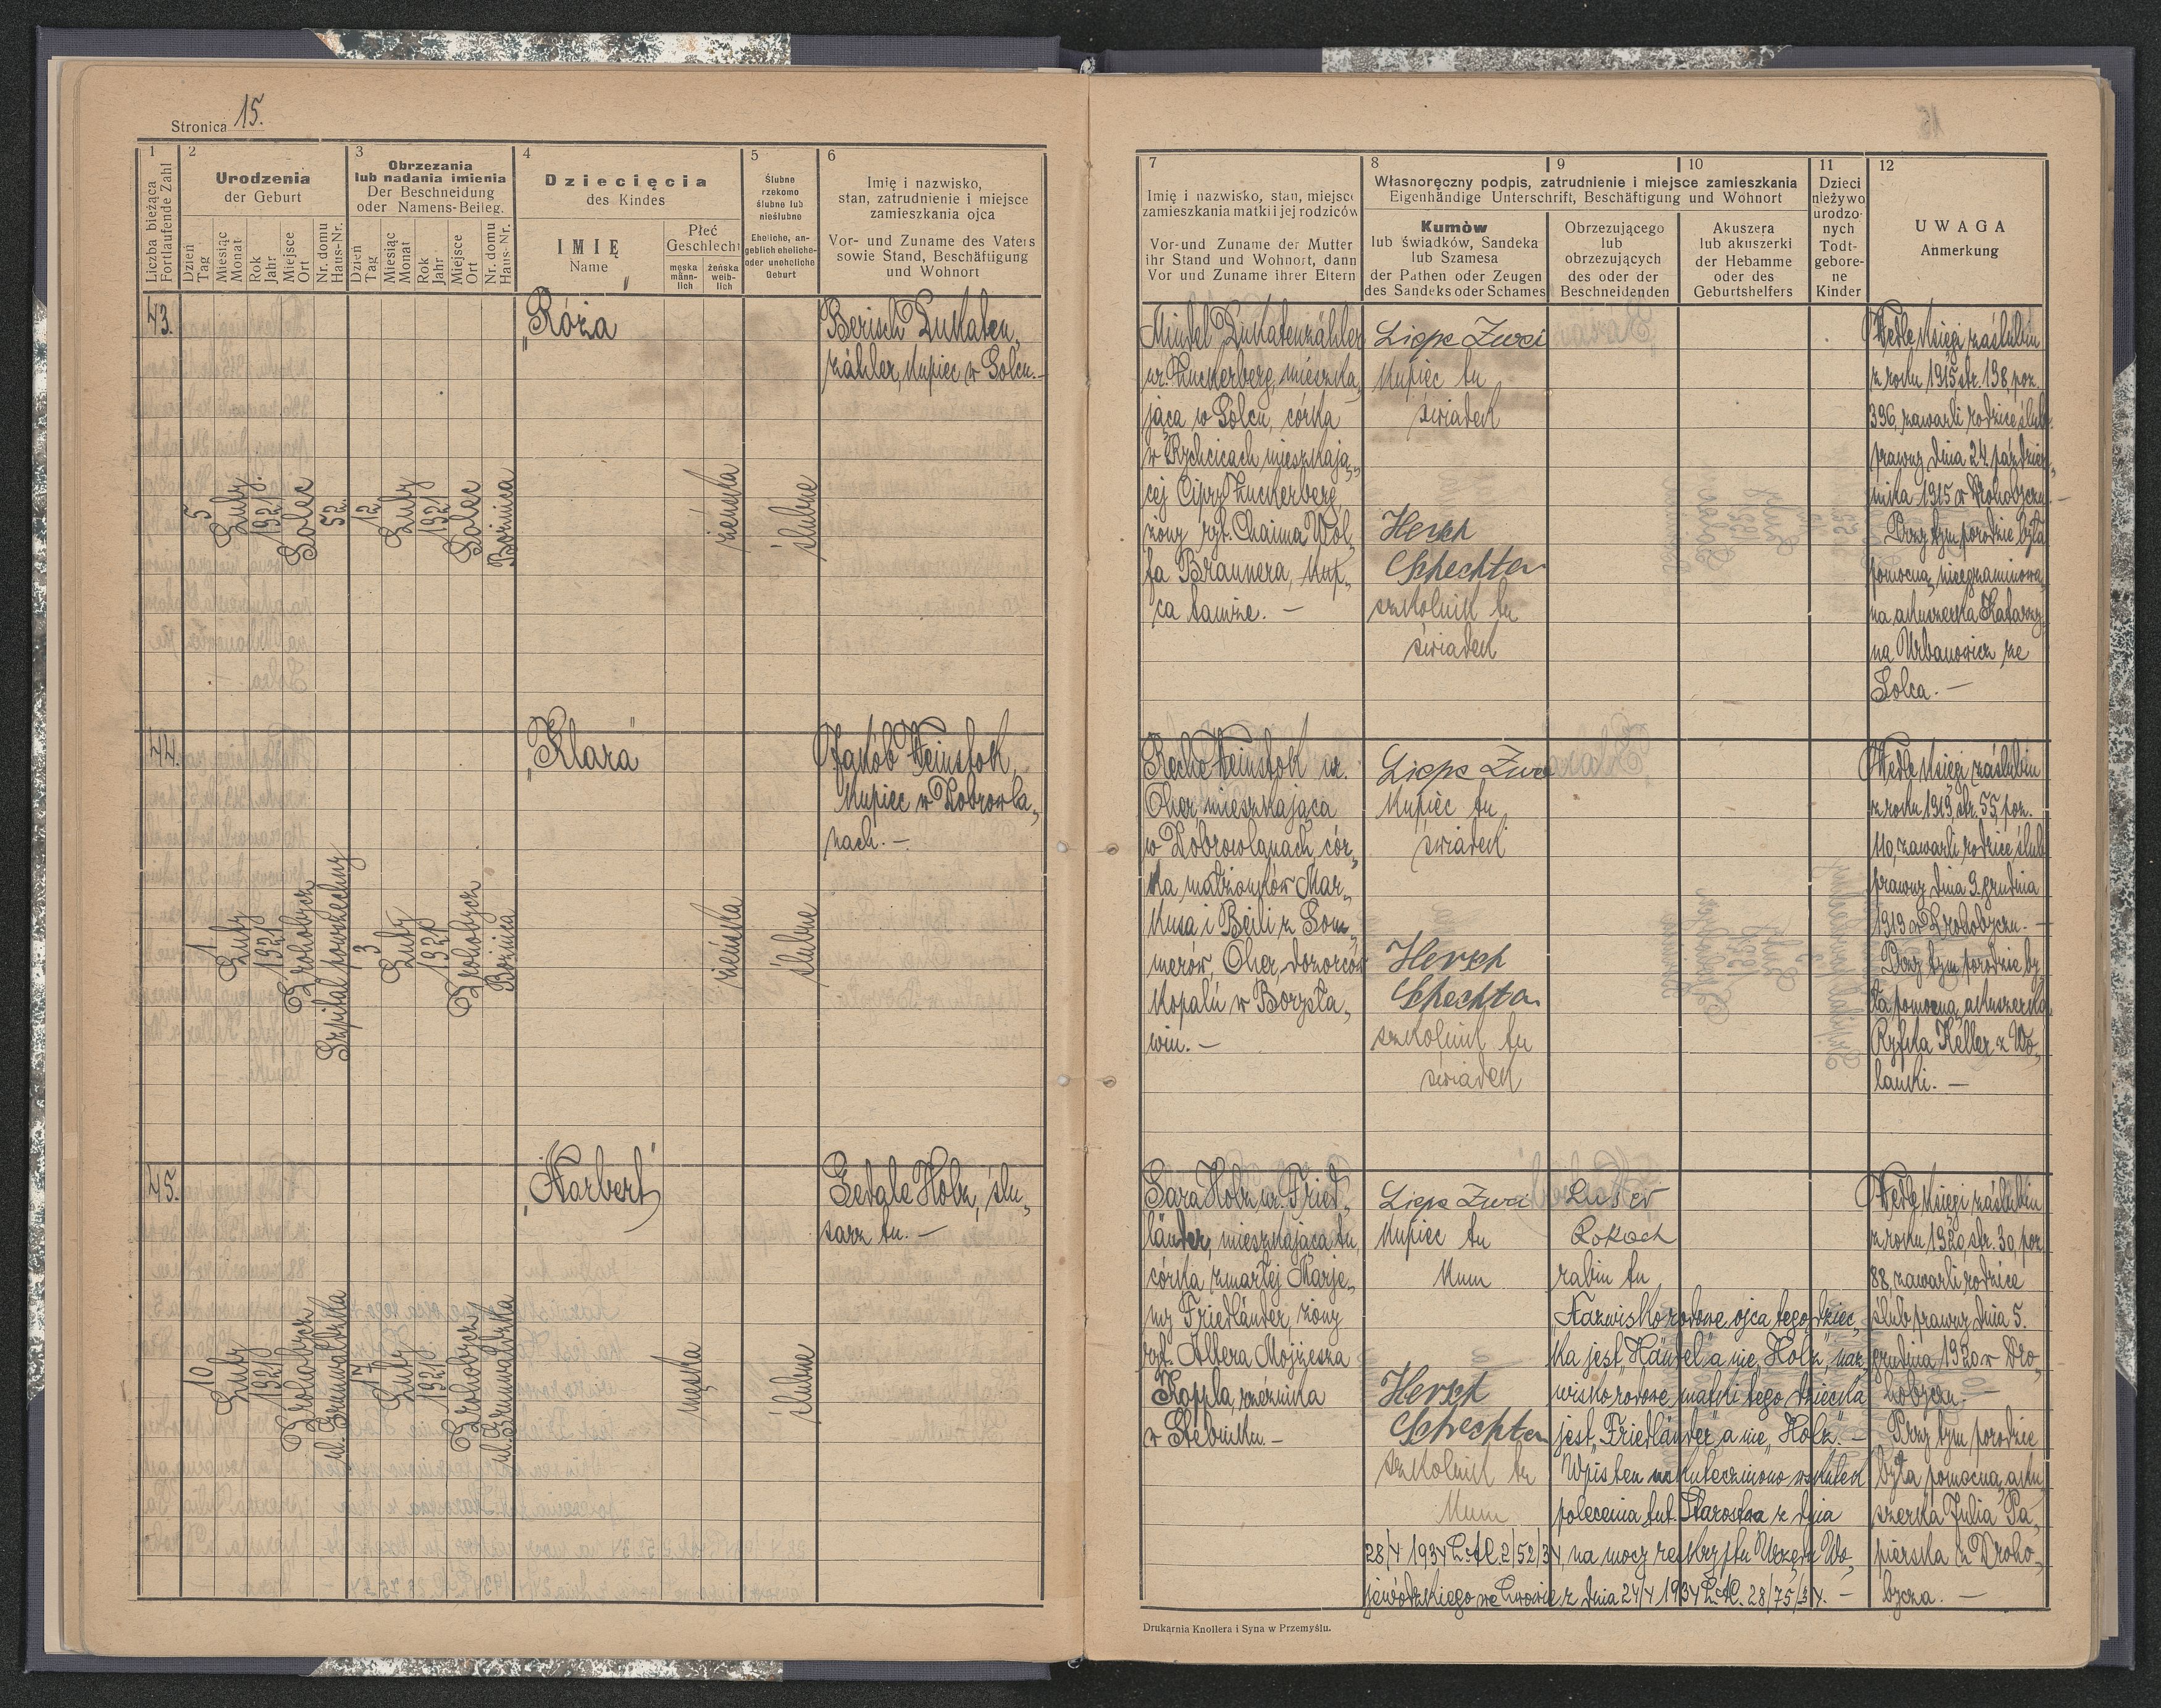 Stronica 15.
1
Liczba bieżąca
Fortlaufende Zahl
2
Urodzenia
der Geburt
Dzień
Tag
Miesiąc
Monat
Rok
Jahr
Miejsce
Ort
Nr. domu
Haus-Nr.
3
Obrzezania
lub nadania imienia
Der Beschneidung
oder Namens-Beileg.
Dzień
Tag
Miesiąc
Monat
Rok
Jahr
Miejsce
Ort
Nr. domu
Haus-Nr.
4
Dziecięcia
des Kindes
IMIĘ
Name
Płeć
Geschlecht
męska
männ-
lich
żeńska
weib-
lich
5
Ślubne
rzekomo
ślubne lub
nieślubne
Eheliche, an-
geblich eheliche-
oder uneheliche
Geburt
6
Imię i nazwisko,
stan, zatrudnienie i miejsce
zamieszkania ojca
Vor- und Zuname des Vaters
sowie Stand, Beschäftigung
und Wohnort
43.
5
Luty
1921
Solec
52.
12
Luty
1921
Solec
Bożnica
„Róża”
żeńska
ślubne
Berisch Dukaten„
zähler, kupiec w Solcu.—
44.
1
Luty
1921
Drohobycz
Szpital powszechny
3
Luty
1921
Drohobycz
Bożnica
„Klara”
żeńska
ślubne
Jakób Weinstok,
kupiec w Dobrowla„
nach.—
45.
10
Luty
1921
Drohobycz
ul. Grunwaldzka
17
Luty
1921
Drohobycz
ul. Grunwaldzka
„Norbert”
męska
ślubne
Gedale Holz, ślu„
sarz tu.—
7
Imię i nazwisko, stan, miejsce
zamieszkania matki i jej rodziców
Vor-und Zuname der Mutter
ihr Stand und Wohnort, dann
Vor und Zuname ihrer Eltern
8
9
10
Własnoręczny podpis, zatrudnienie i miejsce zamieszkania
Eigenhändige Unterschrift, Beschäftigung und Wohnort
Kumów
lub świadków, Sandeka
lub Szamesa
der Pathen oder Zeugen
des Sandeks oder Schames
Obrzezującego
lub
obrzezujących
des oder der
Beschneidenden
Akuszera
lub akuszerki
der Hebamme
oder des
Geburtshelfers
11
Dzieci
nieżywo
urodzo-
nych
Todt-
gebore-
ne
Kinder
12
UWAGA
Anmerkung
Mindel Dukatenzähler
ur. Zuckerberg, mieszka„
jąca w Solcu, córka
w Rychcicach mieszkają„
cej Cipry Zuckerberg
żony ryt. Chaima Wol„
fa Braunera, kup„
ca tamże.—
Lieps Zwei
kupiec tu
świadek
Hersch
Schechter
szkolnik tu
świadek
Wedle księgi zaślubin
z roku 1915 str. 138 poz.
396, zawarli rodzice ślub
prawny dnia 24. paździer„
nika 1915 w Drohobyczu.—
Przy tym porodzie była
pomocną, nieegzaminowa„
na akuszerka Katarzy„
na Urbanowicz ze
Solca.—
Reche Weinstok ur.
Oher mieszkająca
w Dobrowlanach, cór„
ka małżonków Mar„
kusa i Beili z Som„
merów, Oher, dozorców
kopalń w Borysła„
wiu.—
Lieps Zwei
kupiec tu
świadek
Hersch
Schechter
szkolnik tu
świadek
Wedle księgi zaślubin
z roku 1919, str. 55, poz.
110, zawarli rodzice ślub
prawny dnia 9. grudnia
1919 w Drohobyczu.—
Przy tym porodzie by„
ła pomocną akuszerka
Ryfka Keller z Wo„
lanki.—
Sara Holz ur. Fried„
länder, mieszkająca tu,
córka zmarłej Marje„
my Friedländer, żony
ryt. Altera Mojżesza
Koppla, rzeźnika
w Stebniku.—
Lieps Zwei
kupiec tu
kum
Hersch
Schechter
szkolnik tu
kum
Luser
Rokach
rabin tu
„Nazwisko rodowe ojca tego dziec„
ka jest „Händel” a nie „Holz”, naz„
wisko rodowe matki tego dziecka
jest „Friedländer” a nie „Holz”.—
Wpis ten uskuteczniono wskutek
polecenia tut. Starostwa z dnia
28/4 1934 L. Al. 2/52/34, na mocy reskryptu Urzędu Wo„
jewódzkiego we Lwowie z dnia 24/4 1934 L. Al. 28/75/34.—
Wedle księgi zaślubin
z roku 1920 str. 30, poz.
88, zawarli rodzice
ślub prawny dnia 5.
grudnia 1920 w Dro„
hobyczu.—
Przy tym porodzie
była pomocną aku„
szerka Julia Pa„
pierska z Droho„
bycza.—
Drukarnia Knollera i Syna w Przemyślu.